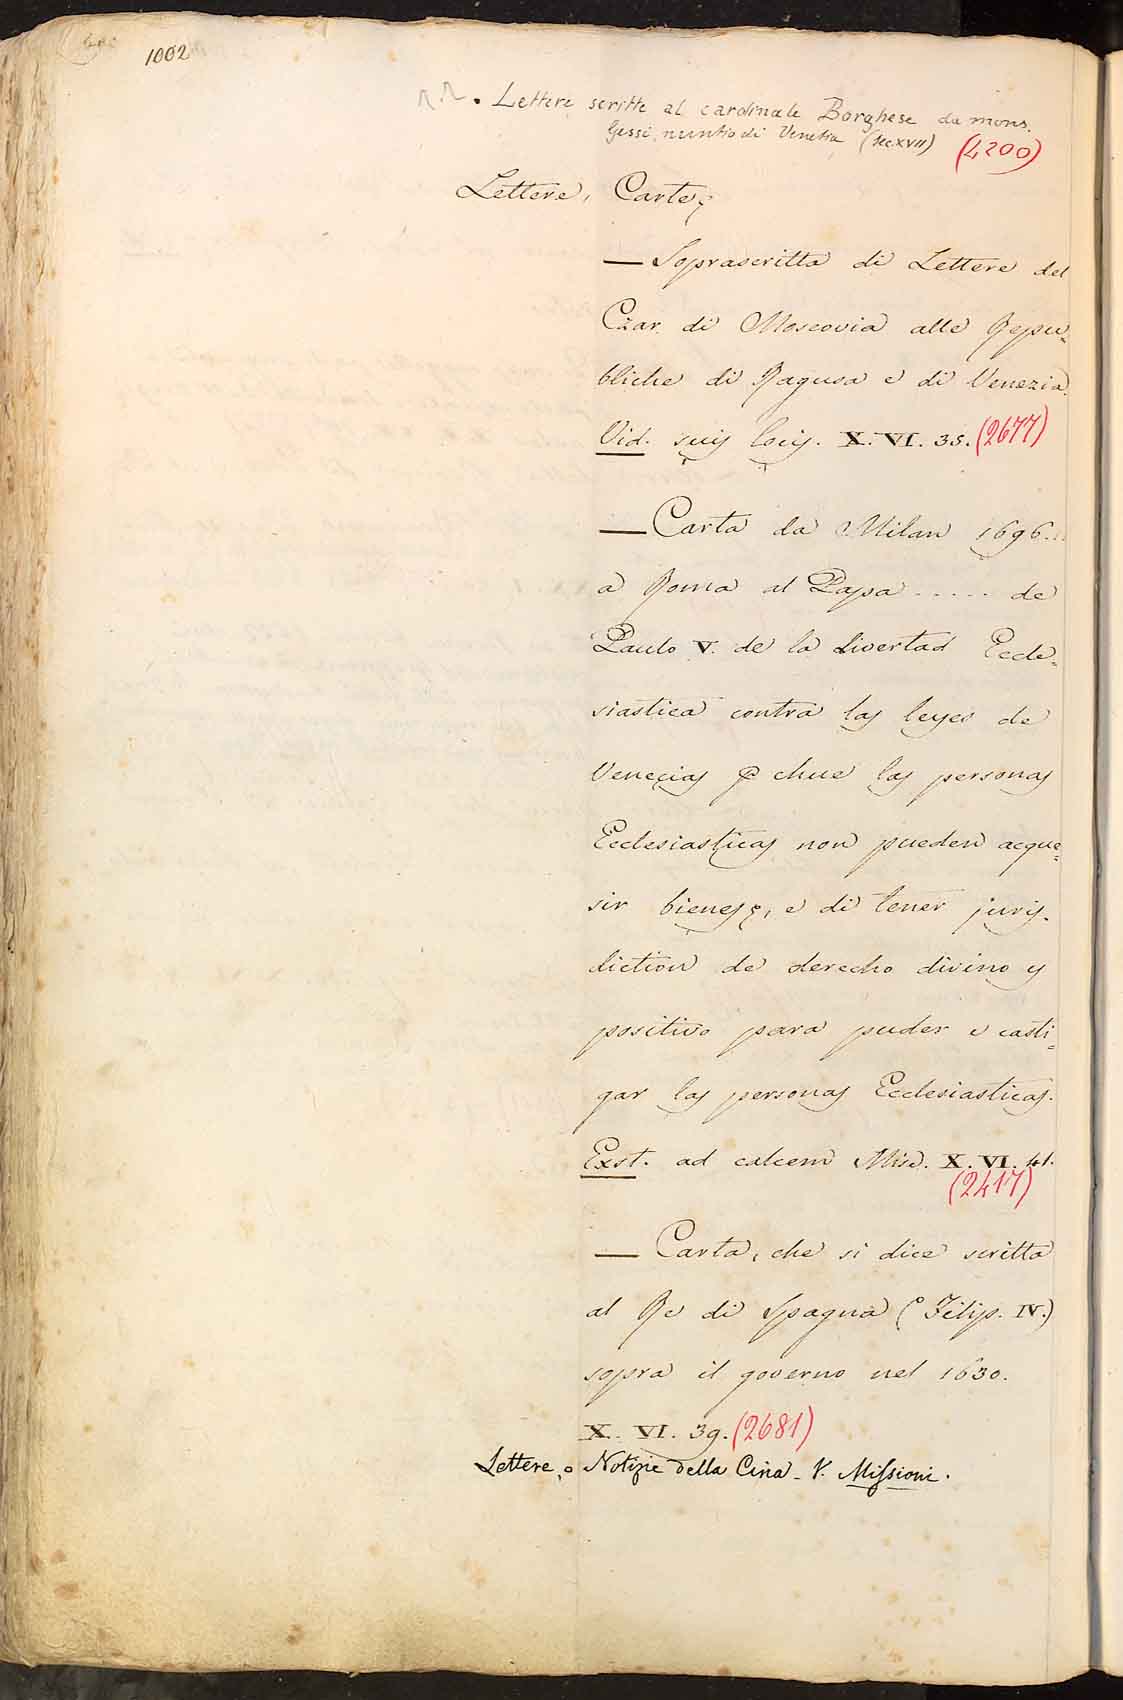 1002
Lettere scritte al cardinale Borghese da mons.
Gessi, nuntio di Venetia (sec XVII) (4200)
Lettere, Carte,
— Soprascritta di Lettere del
Czar. di Moscovia alle Repu=
bliche di Ragusa e di Venezia.
Vid. suis locis. X. VI. 35. (2677)
— Carta da Milan 1696..
a Roma al Papa ..... de
Paulo V. de la livertad Eccle=
siastica contra las leyes de
Venecias chue las personas
Ecclesiasticas non pueden acque=
sir bienes, e di tener juris.
diction de derecho divino y
positivo para puder e casti=
gar las personas Ecclesiasticas.
Exst. ad calcem Misc. X. VI. 41.
(2417)
— Carta, che si dice scritta
al Re di Spagna (Filip. IV.)
sopra il governo nel 1630.
X. VI. 39. (2681)
Lettere, o Notizie della Cina - V. Missioni.